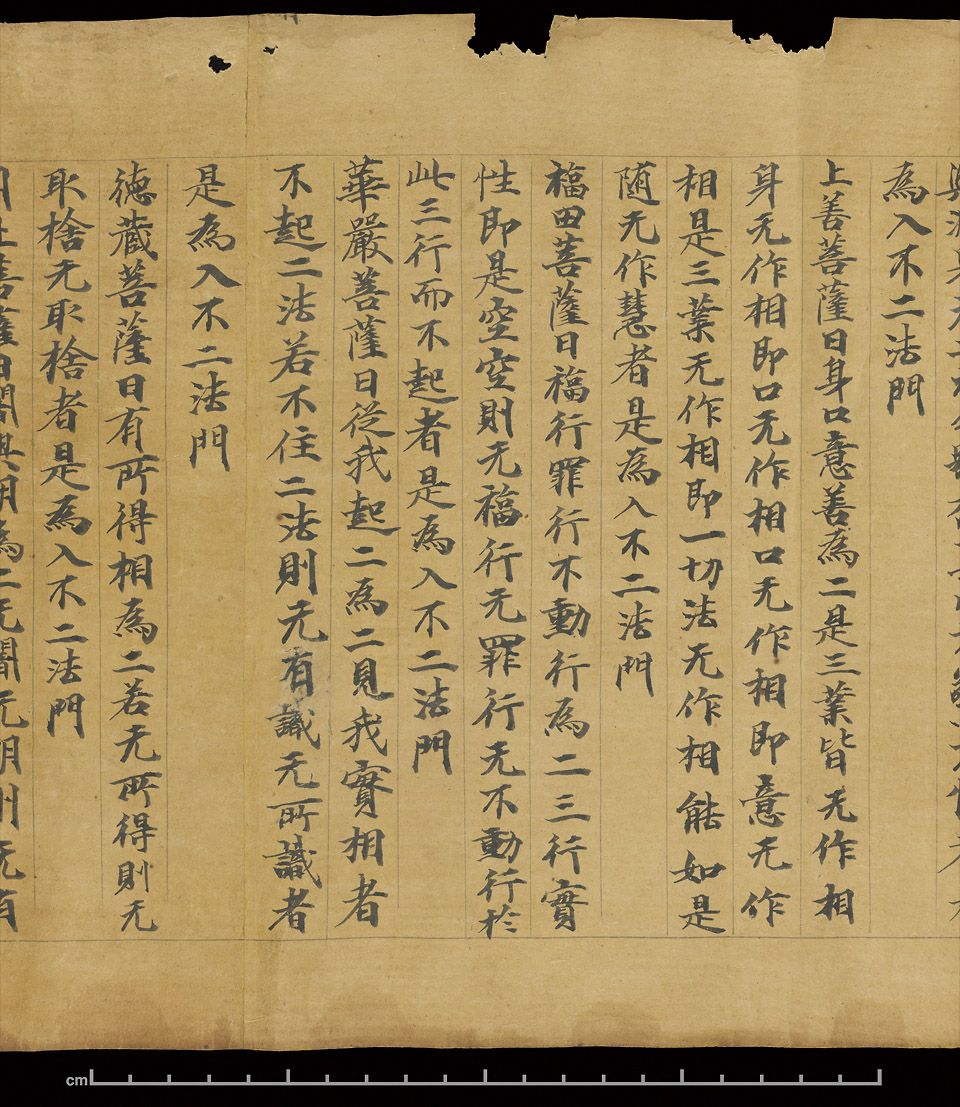 為入不二法門
上善菩薩曰身口意善為二是三業皆无作相
身无作相即口无作相口无作相即意无作
相是三業无作相即一切法无作相能如是
随无作慧者是為入不二法門
福田菩薩曰福行罪行不動行為二三行實
性即是空空則无福行无罪行无不動行於
此三行而不起者是為入不二法門
華嚴菩薩曰從我起二為二見我實相者
不起二法若不住二法則无有識无所識者
是為入不二法門
徳蔵菩薩曰有所得相為二若无所得則无
取捨无取捨者是為入不二法門
菩薩曰闇與明為二无闇无明則无有
cm